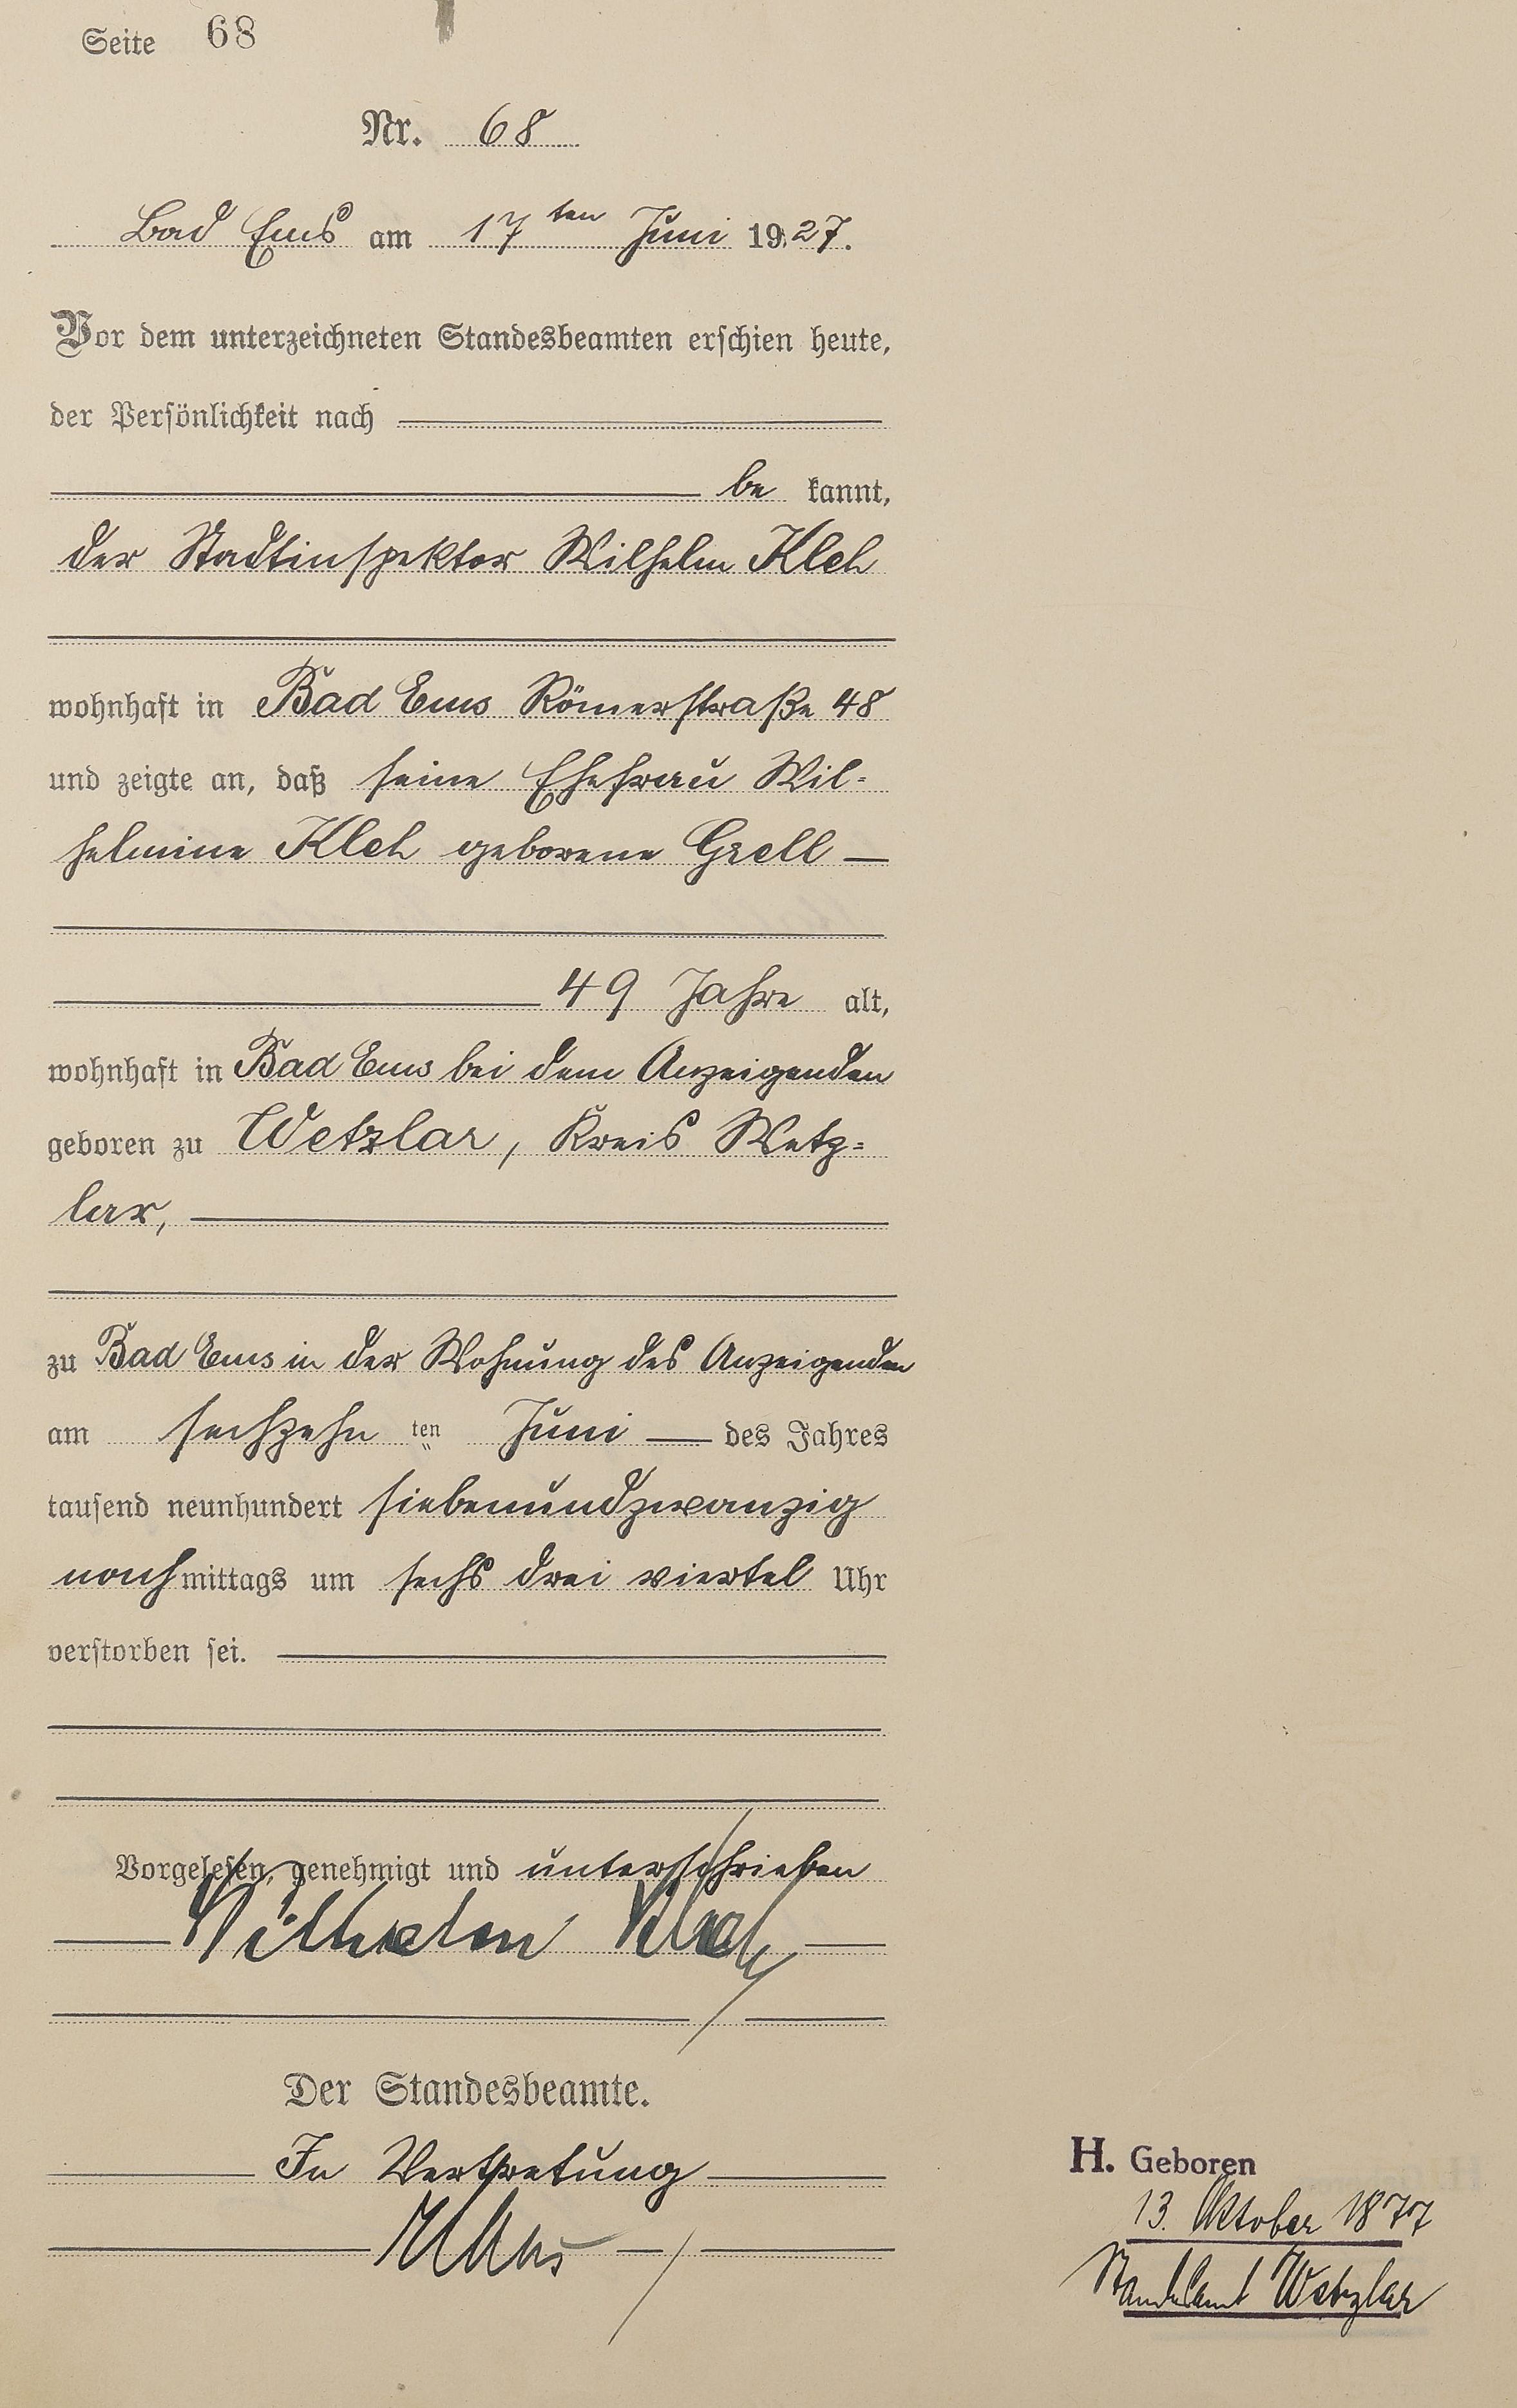 Seite 68
Nr. 68
Bad Ems am 17ten Juni 1927.
Vor dem unterzeichneten Standesbeamten erschien heute,
der Persönlichkeit nach
be kannt,
der Stadtinspektor Wilhelm Kleh
wohnhaft in Bad Ems Römerstraße 48
und zeigte an, daß seine Ehefrau Wil-
helmine Kleh geborene Grell
49 Jahre alt,
wohnhaft in Bad Ems bei dem Anzeigenden
geboren zu Wetzlar, Kreis Wetz-
lar,
zu Bad Ems in der Wohnung des Anzeigenden
am sechzehn ten Juni des Jahres
tausend neunhundert siebenundzwanzig
nachmittags um sechs drei viertel Uhr
verstorben sei.
Vorgelesen, genehmigt und unterschrieben
Wilhelm Kleh
Der Standesbeamte.
In Vertretung
H. Geboren
13. Oktober 1877
Standesamt Wetzlar